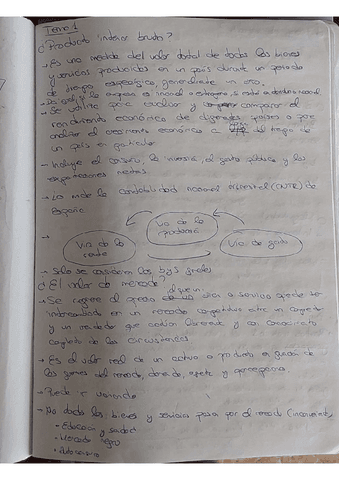 Tema 1
¿Producto interior bruto?
→ Es una medida del valor total de todos los bienes
y servicios producidos en un país durante un periodo
de tiempo específico, generalmente un año.
→ Se utiliza para evaluar y comparar el
rendimiento económico de diferentes países o para
analizar el crecimiento económico a del tiempo de
un país en particular
→ Incluye el consumo, la inversión, el gasto público y las
exportaciones netas.
→ Lo mide la contabilidad nacional trimestral (CNTR) de
España
→
Vía de la
producción
Vía de la
renta
Vía de gasto
→ Solo se consideran los bys finales
¿El valor de mercado?
→ Se refiere al precio al que un bien o servicio puede ser
intercambiado en un mercado competitivo entre un comprador
y un vendedor que actúan libremente y con conocimiento
completo de las circunstancias
→ Es el valor real de un activo o producto en función de
las del mercado, demanda, oferta y percepciones.
→ Puede variar
→ No todos los bienes y servicios pasan por el mercado (inconveniente)
- Educación y sanidad
- Mercado negro
- Autoconsumo